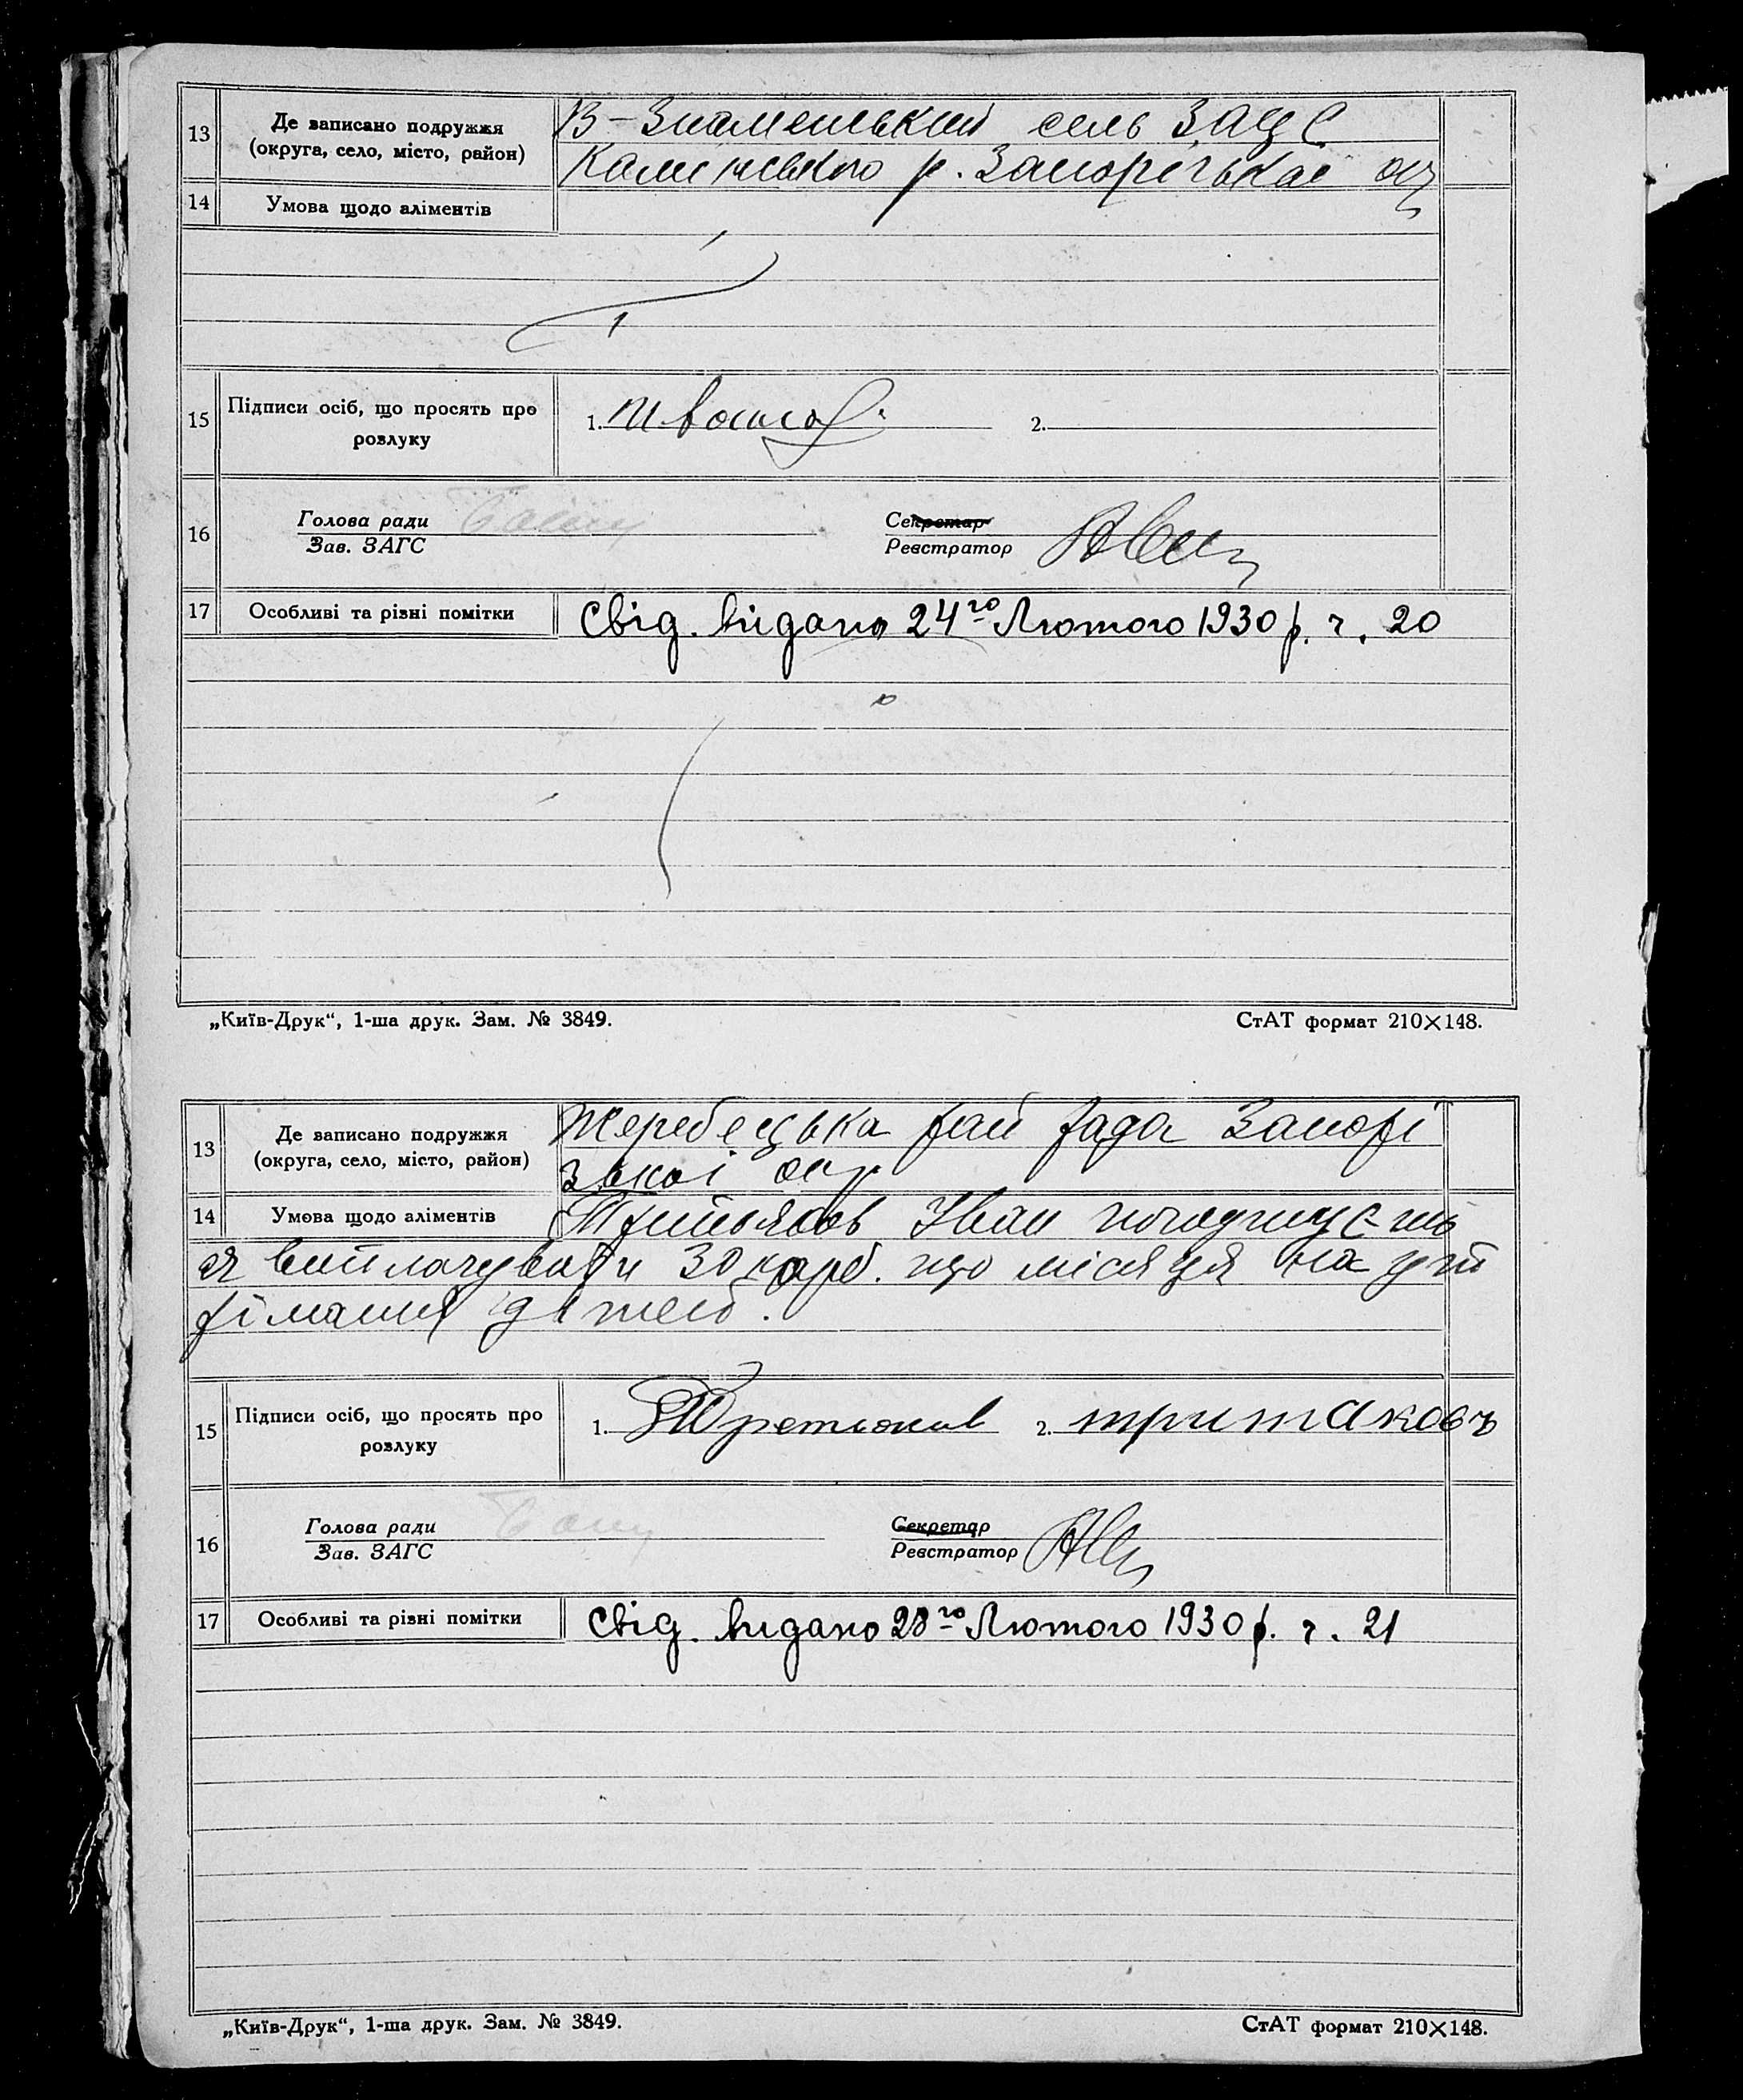 13
Де записано подружжя
(округа, село, місто, район)
В-Знаменський сель ЗАЦС
р. Запорізької
14
Умова щодо аліментів
15
Підписи осіб, що просять про
розлуку
1.
2.
16
Голова ради
Зав. ЗАГС
Секретар
Реєстратор
17
Особливі та різні помітки
Свід. видано 24го Лютого 1930 р. ч. 20
„Київ-Друк“, 1-ша друк. Зам. № 3849.
СтАТ формат 210×148.
13
Де записано подружжя
(округа, село, місто, район)
Жеребецька рай рада Запорі
зької окр
14
Умова щодо аліментів
Іван погоджуєть
ся виплачувати 30 карб. що місяця на ут
рімання дітей.
15
Підписи осіб, що просять про
розлуку
1.
2. тритаковъ
16
Голова ради
Зав. ЗАГС
Секретар
Реєстратор
17
Особливі та різні помітки
Свід. видано 28го Лютого 1930 р. ч. 21
„Київ-Друк“, 1-ша друк. Зам. № 3849.
СтАТ формат 210×148.